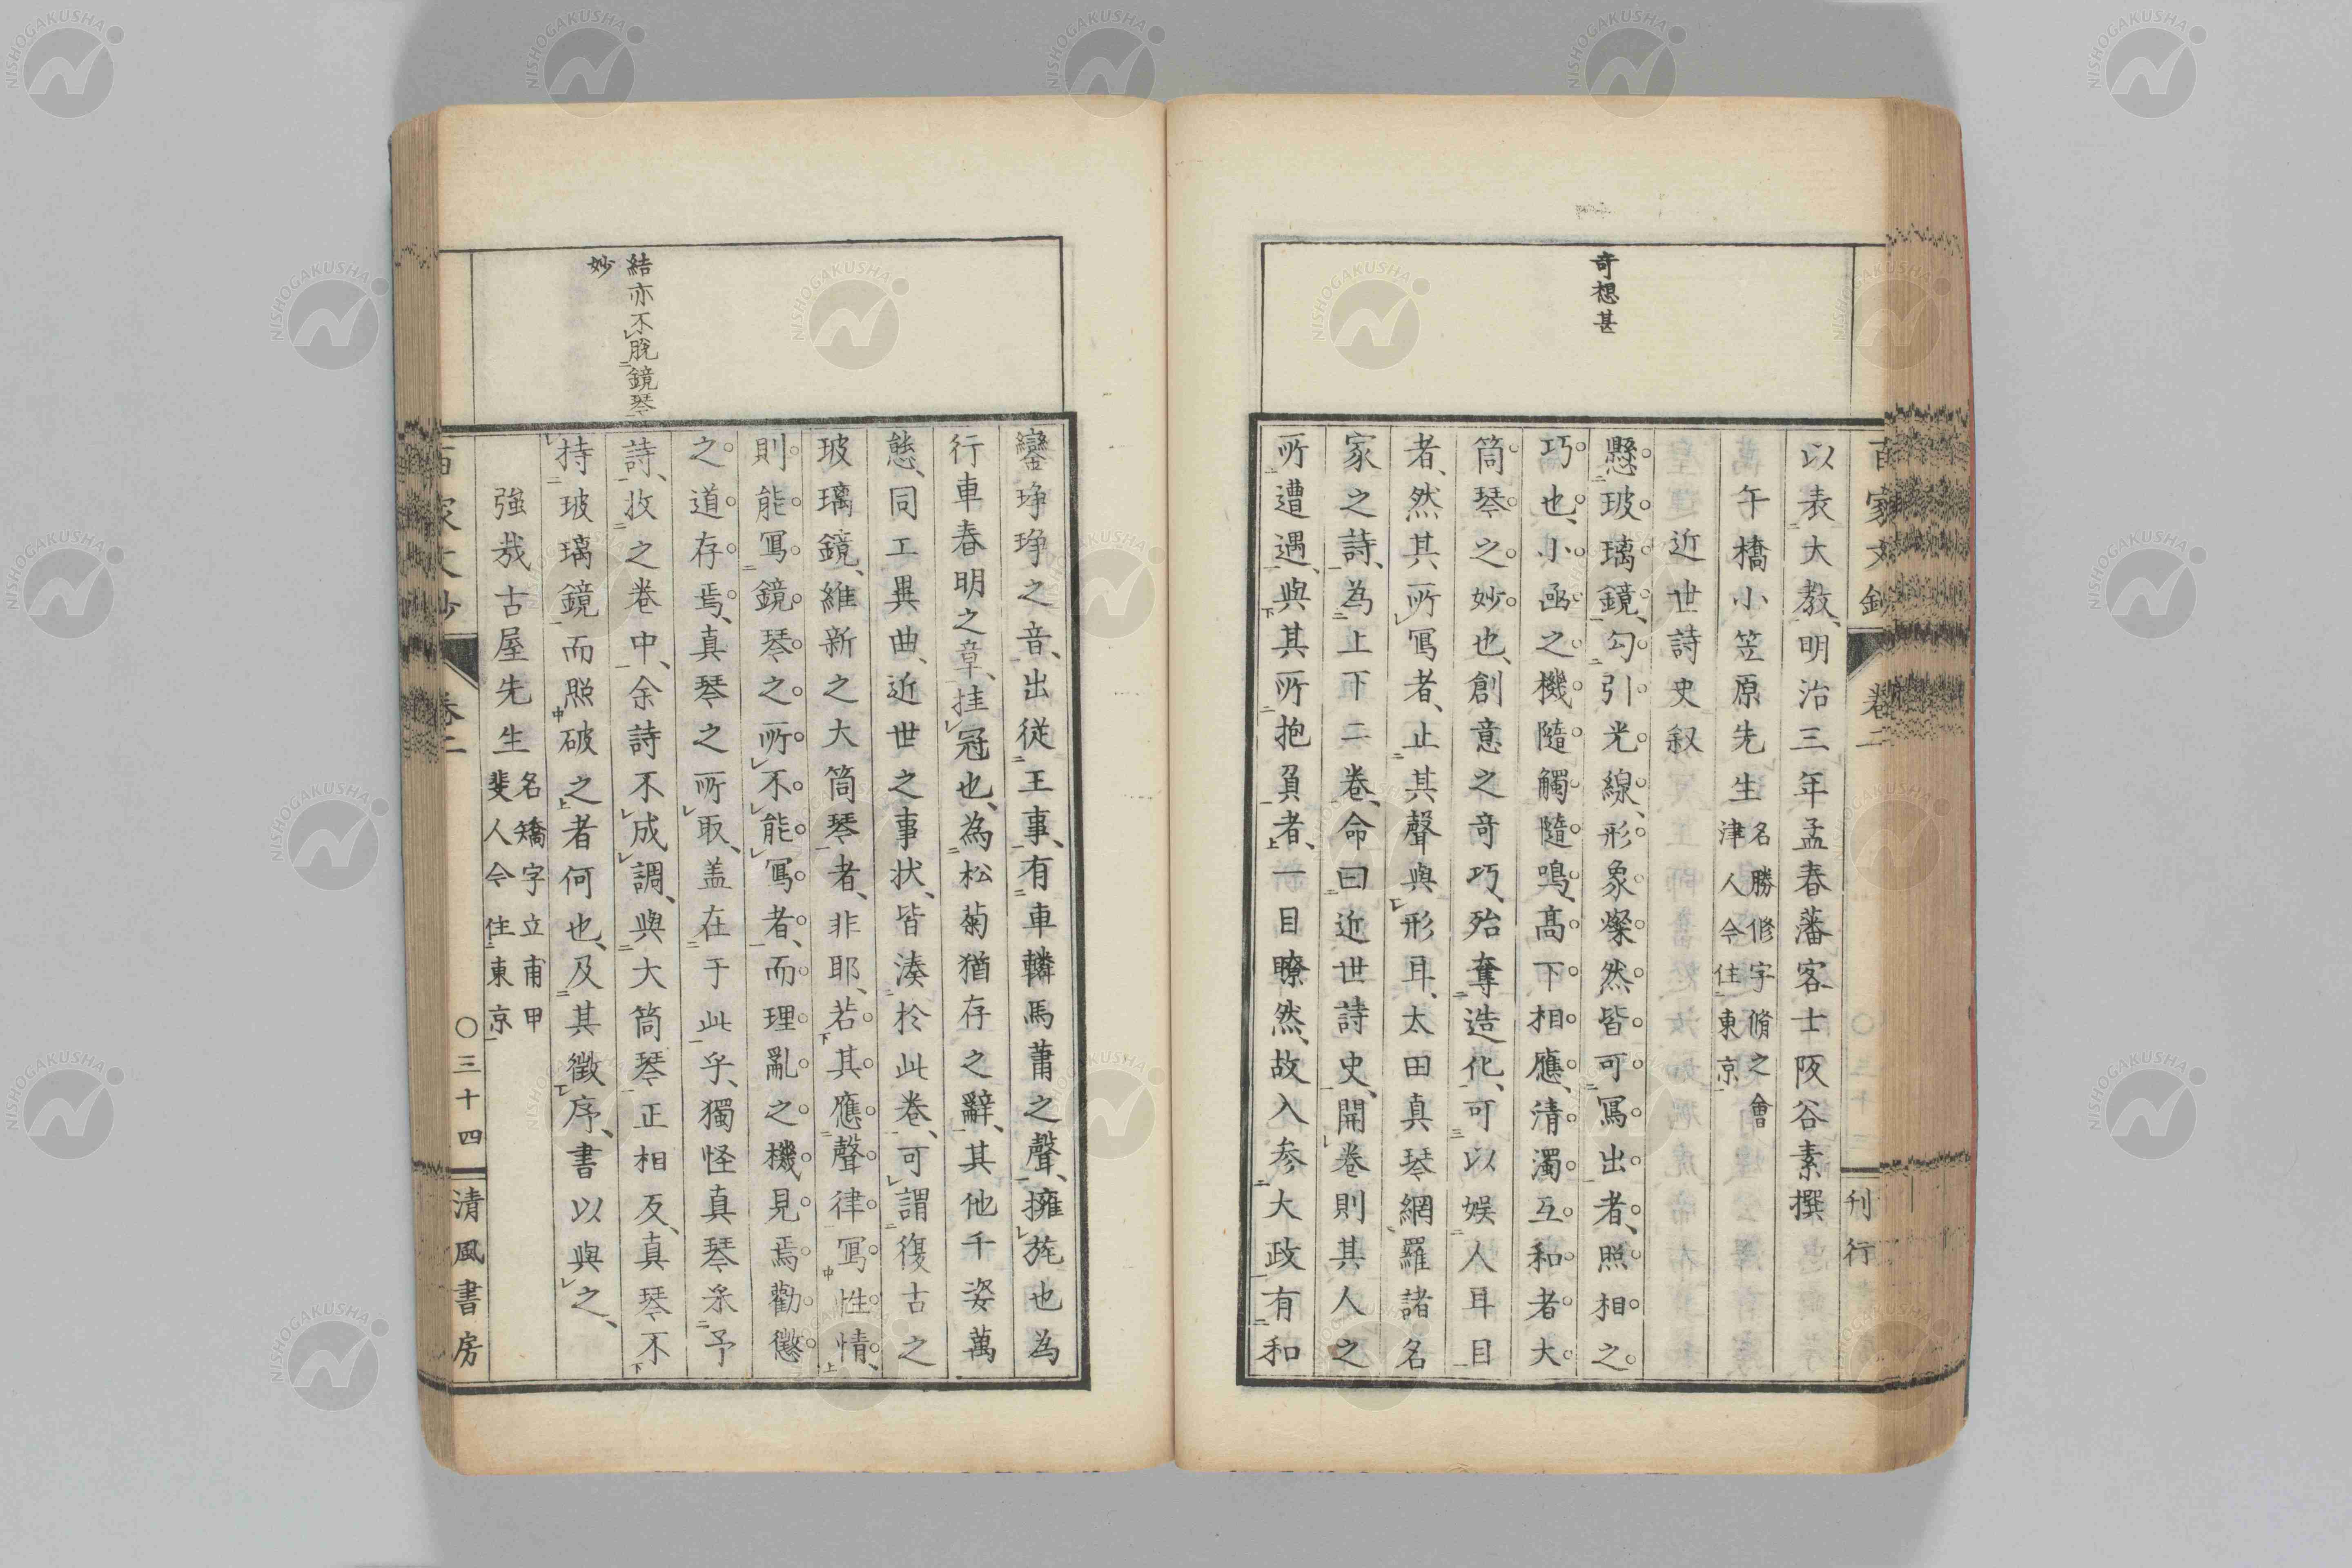 百家文鈔 卷二 刊行
奇想甚
以表大教、明治三年孟春藩客士阪谷素撰
午橋小笠原先生 名勝修字脩之會
津人今住東京
近世詩史叙
懸玻璃鏡、勾引光線、形象燦然皆可寫出者、照相之
巧也、小凾之機隨觸隨鳴、高下相應、清濁互和者大
筒琴之妙也、創意之奇巧、殆奪造化、可以娯人耳目
者、然其所寫者、止其聲與形耳、太田真琴網羅諸名
家之詩、為上下二卷、命曰近世詩史、開卷則其人之
所遭遇、與其所抱負者、一目瞭然、故入參大政有和
結亦不脫鏡琴
妙
鑾琤琤之音、出從王事、有車轔馬蕭之聲、擁旄也為
行車春明之章、挂冠也、為松菊猶存之辭、其他千姿萬
態、同工異曲、近世之事状、皆湊於此卷、可謂復古之
玻璃鏡、維新之大筒琴者、非耶、若其應聲律寫性情、
則能寫鏡琴之所不能寫者、而理亂之機見焉勸懲
之道存焉、真琴之所取、盖在于此乎、獨怪真琴采予
詩、收之卷中、余詩不成調、與大筒琴正相反、真琴不
持玻璃鏡而照破之者何也、及其徵序、書以與之、
強哉古屋先生 名矯字立甫甲
斐人今住東京
百家文鈔 卷二 〇三十四 清風書房
NISHOGAKUSHA